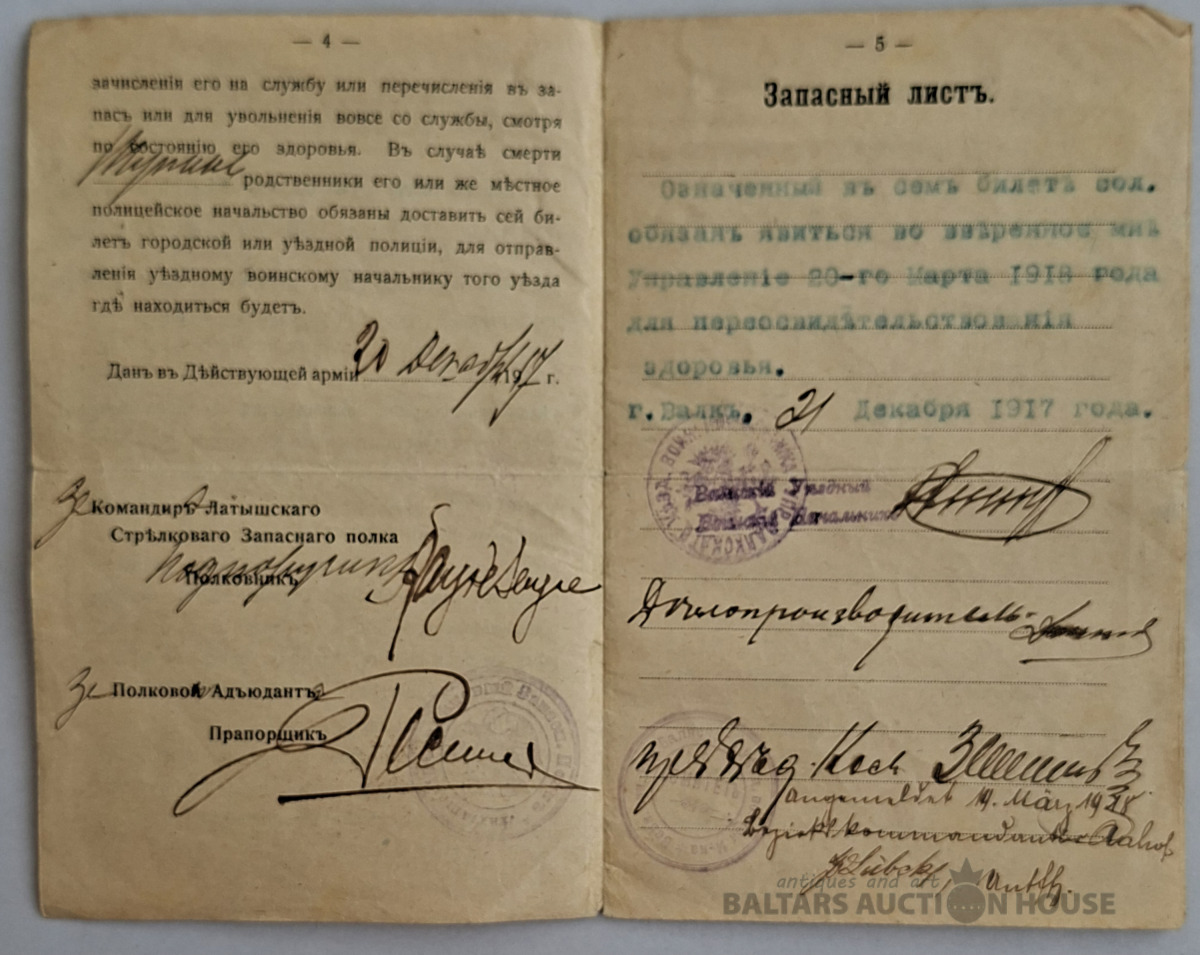 — 4 —
зачисленія его на службу или перечисленія въ за-
пасъ или для увольненія вовсе со службы, смотря
по состоянію его здоровья. Въ случаѣ смерти
родственники его или же мѣстное
полицейское начальство обязаны доставить сей би-
летъ городской или уѣздной полиціи, для отправ-
ленія уѣздному воинскому начальнику того уѣзда
гдѣ находиться будетъ.
Данъ въ Дѣйствующей арміи 30 Декабря 1917 г.
За Командиръ Латышскаго
Стрѣлковаго Запаснаго полка
Полковникъ
За Полковой Адъютантъ
Прапорщикъ
— 5 —
Запасный листъ.
Означенный въ семъ билетѣ сол.
обязанъ явиться во ввѣренное мнѣ
Управленіе 20-го Марта 1918 года
для переосвидѣтельствованія
здоровья.
г. Валкъ, 31 Декабря 1917 года.
Валкскій Уѣздный
Воинскій Начальникъ
Дѣлопроизводитель
Angemeldet 19. März 1918
Bezirkskommandantur
antiques and art
BALTARS AUCTION HOUSE